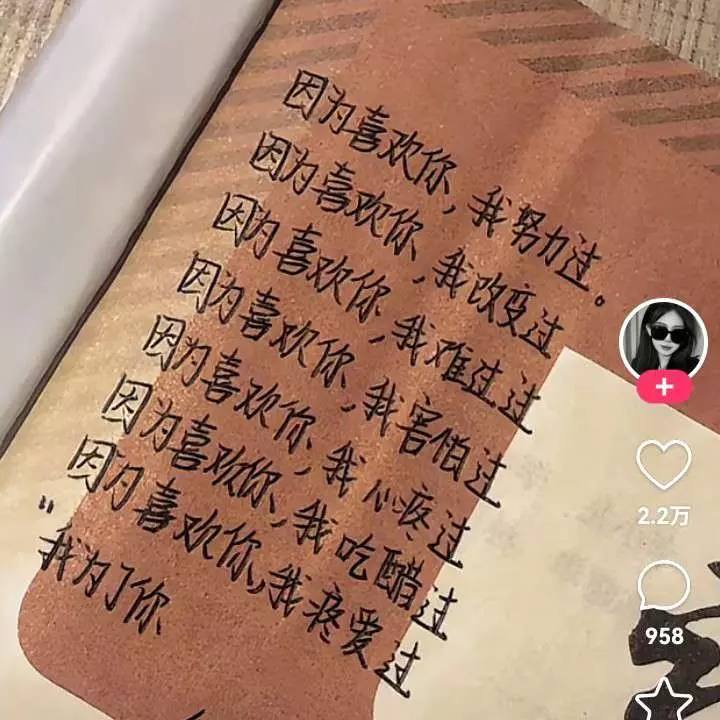 因为喜欢你,我努力过。
因为喜欢你,我改变过
因为喜欢你,我难过过
因为喜欢你,我害怕过
因为喜欢你,我心疼过
因为喜欢你,我吃醋过
因为喜欢你,我疼爱过
“我为了你
2.2万
958